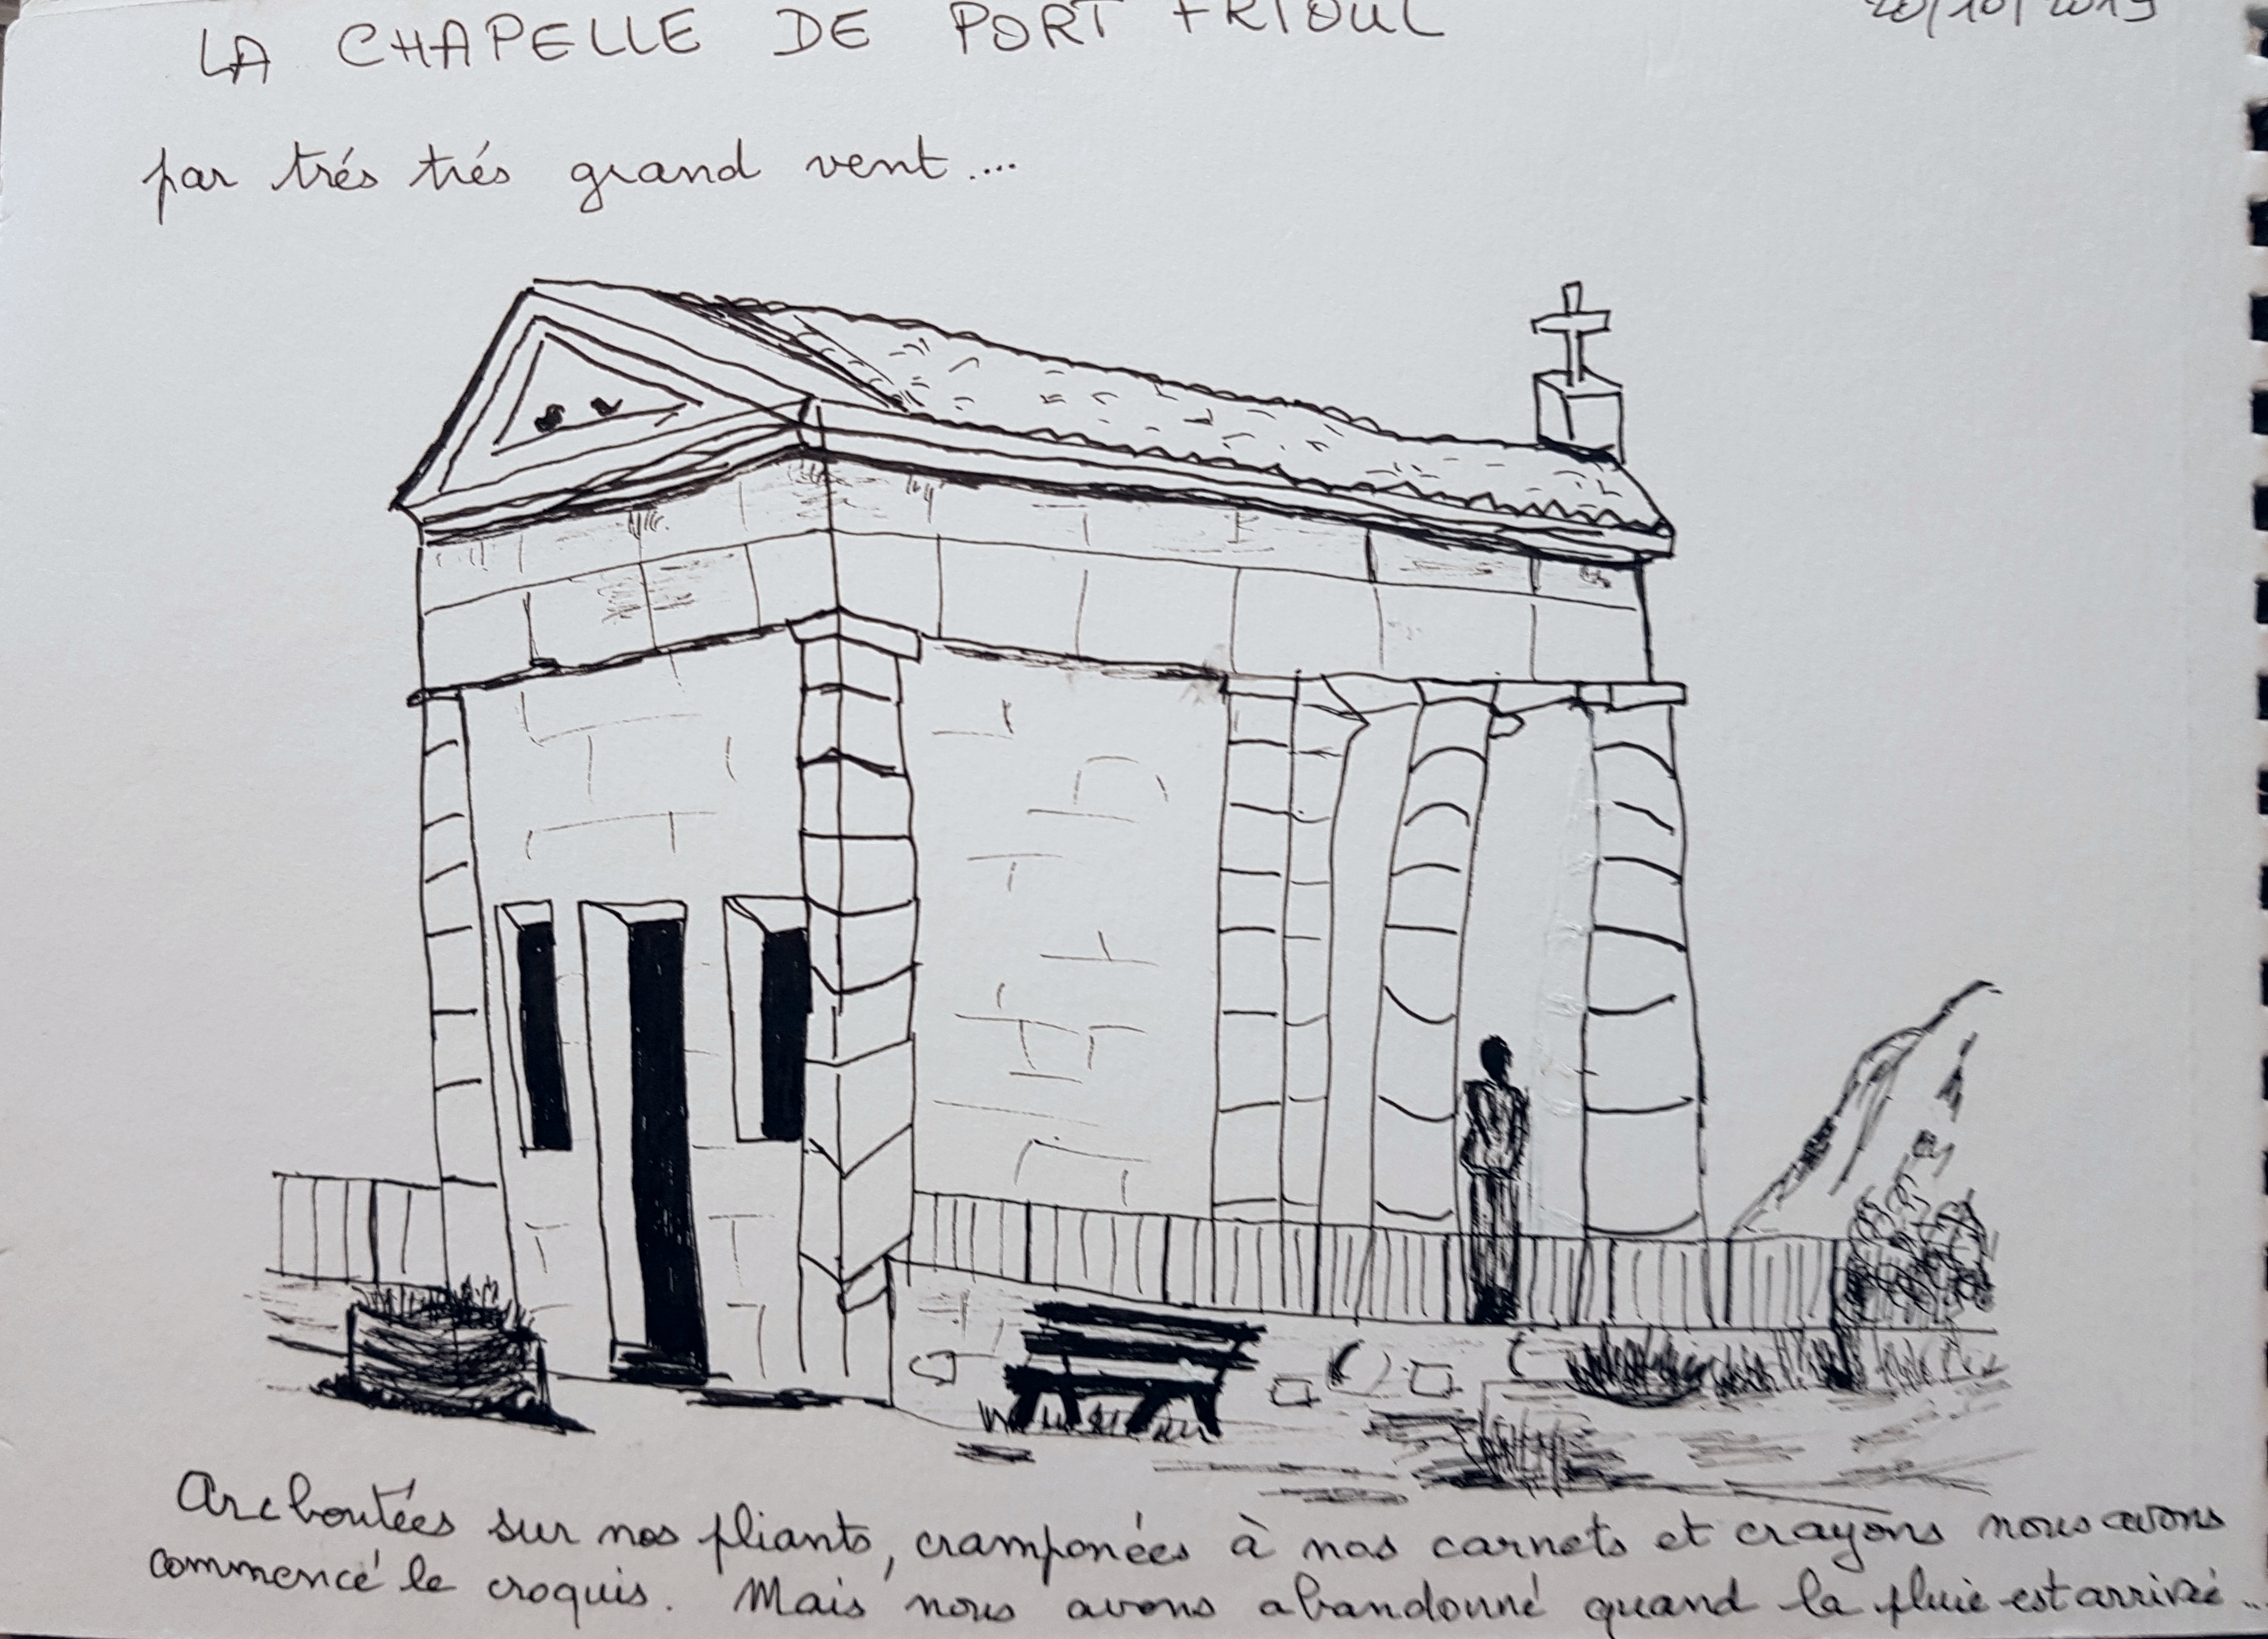 LA CHAPELLE DE PORT FRIOUL 20/10/2019
par trés trés grand vent....
Arcboutées sur nos pliants, cramponées à nos carnets et crayons nous avons
commencé le croquis. Mais nous avons abandonné quand la pluie est arrivée...